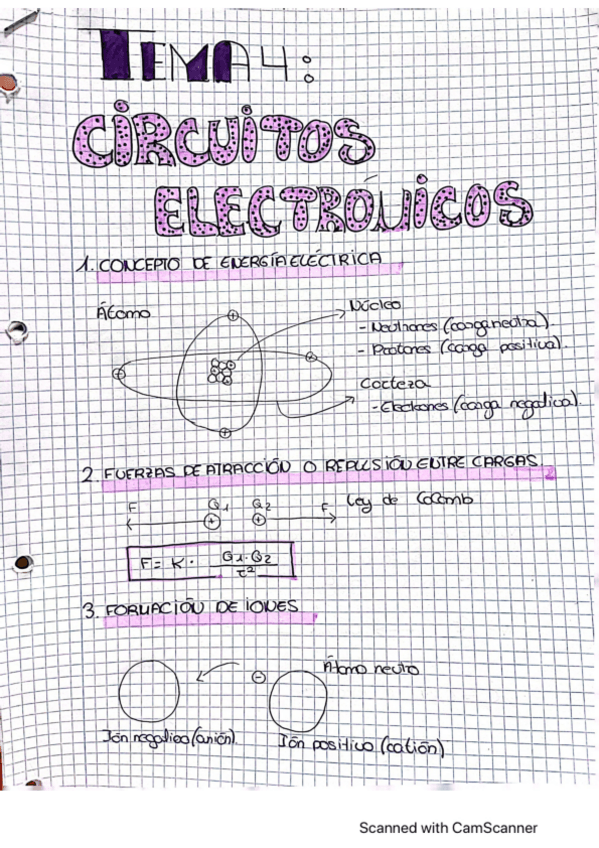 TEMA 4:
CIRCUITOS
ELECTRÓNICOS
1. CONCEPTO DE ENERGÍA ELÉCTRICA
Átomo
Núcleo
- Neutrones (carga neutra).
- Protones (carga positiva).
Corteza
- Electrones (carga negativa).
2. FUERZAS DE ATRACCIÓN O REPULSIÓN ENTRE CARGAS.
F Q1 Q2 F Ley de Colomb
F = K · Q1·Q2 / r²
3. FORMACIÓN DE IONES
Átomo neutro
Ión negativo (anión). Ión positivo (catión)
Scanned with CamScanner